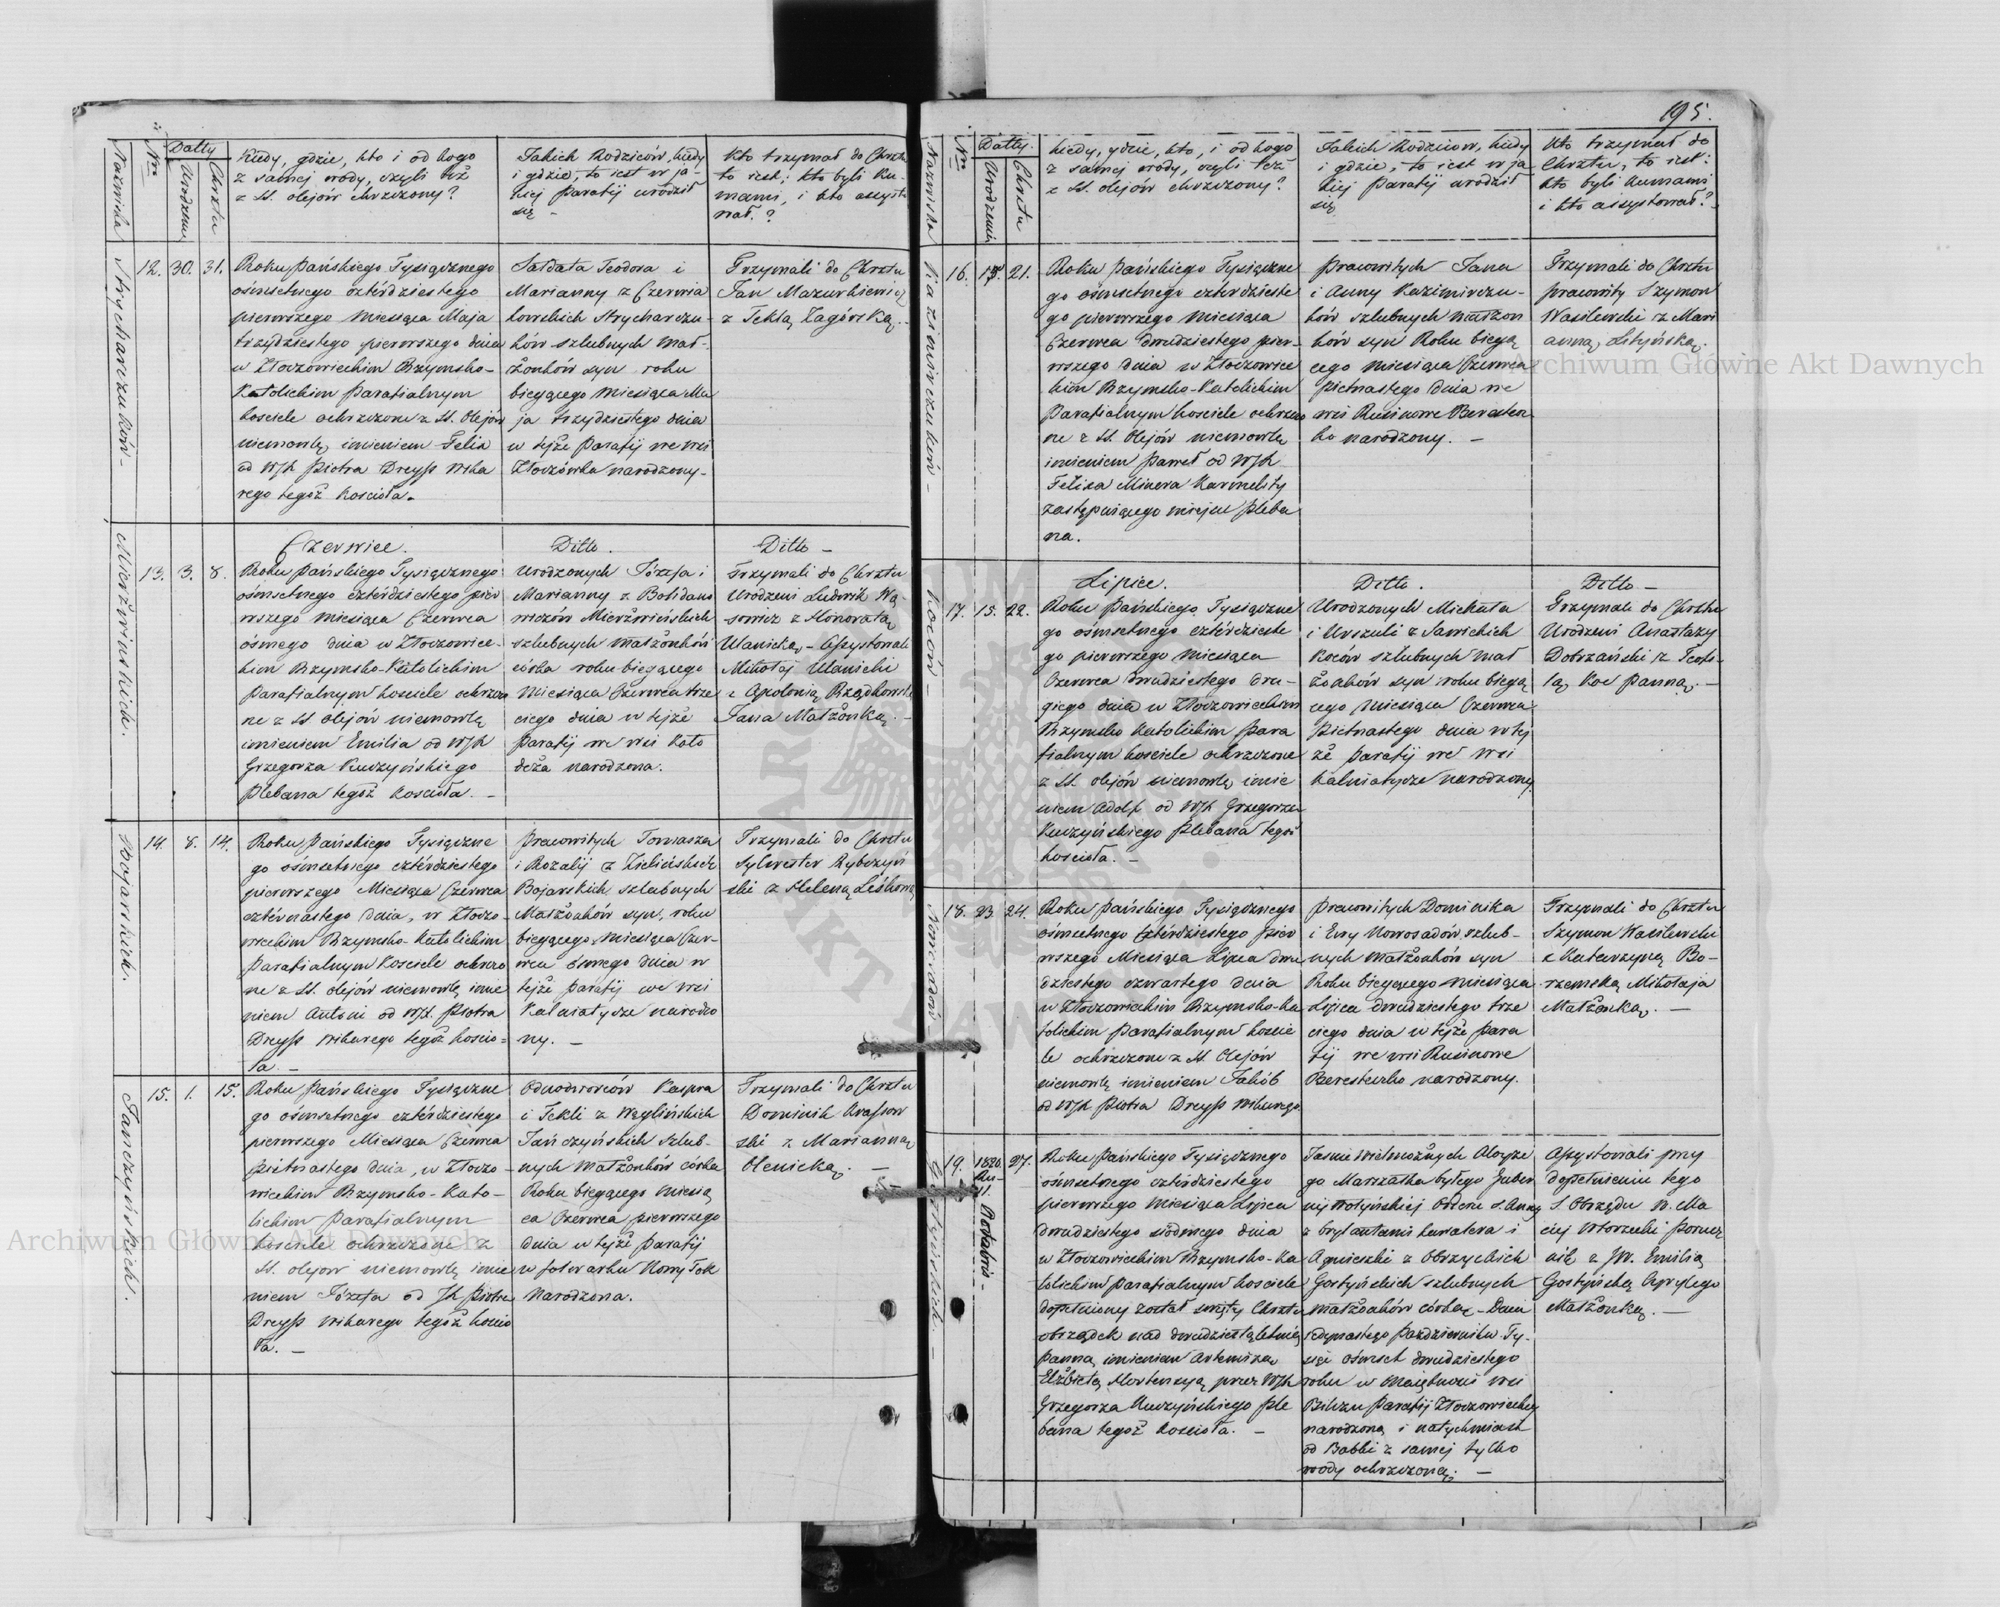 195.
Nazwiska
Nro
Datty
Urodzenia
Chrztu
Kiedy, gdzie, kto i od kogo
z samej wody, czyli też
z SS. olejów chrzczony?
Jakich Rodziców, kiedy
i gdzie, to iest w ja-
kiej Parafij urodził
się -
Kto trzymał do Chrztu
to iest; kto byli Ku-
mami, i kto assysto
wał.?
Strycharczuków -
12. 30. 31.
Roku Pańskiego Tysiącznego
ośmsetnego cztérdziestego
pierwszego Miesiąca Maja
trzydziestego pierwszego dnia
w Złoczowieckim Rzymsko-
Katolickim Parafialnym
kościele ochrzczone z SS. Olejów
niemowlę imieniem Felix
od WJX Piotra Dreyss Wika
rego tegoż Kościoła.
Sałdata Teodora i
Marianny z Czerwia
kowskich Strycharczu-
ków szlubnych Mał-
żonków syn roku
bieżącego Miesiąca Ma
ja trzydziestego dnia
w tejże Parafij we wsi
Złoczówka narodzony.
Trzymali do Chrztu
Jan Mazurkiewicz
z Teklą Zagórską.
Mierzwińskich.
Czerwiec.
Ditto.
Ditto -
13. 3. 8.
Roku Pańskiego Tysiącznego
ośmsetnego cztérdziestego pier
wszego Miesiąca Czerwca
ósmego dnia w Złoczowiec-
kim Rzymsko-Katolickim
Parafialnym kościele ochrzczo
ne z SS. olejów niemowlę
imieniem Emilia od WJX
Grzegorza Kuczyńskiego
Plebana tegoż Kościoła. -
Urodzonych Józefa i
Marianny z Bohdano
wiczów Mierzwińskich
szlubnych małżonków
córka roku bieżącego
Miesiąca Czerwca trze
ciego dnia w tejże
Parafij we wsi Koło
deża narodzona.
Trzymali do Chrztu
Urodzeni Ludwik Wą
sowicz z Honoratą
Ulanicką - Assystowali
Mikołaj Ulanicki
z Apolonią Rządkowską
Jana Małżonką. -
Bojarskich.
14. 8. 14.
Roku Pańskiego Tysiączne
go ośmsetnego cztérdziestego
pierwszego Miesiąca Czerwca
czternastego dnia, w Złoczo-
wieckim Rzymsko-Katolickim
Parafialnym Kościele ochrzczo
ne z SS. olejów niemowlę imie
niem Antoni od WJX. Piotra
Dreyss Wikarego tegoż kościo-
ła. -
Pracowitych Tomasza
i Rozalij z Zielińskich
Bojarskich szlubnych
Małżonków syn, roku
bieżącego, miesiąca Czer-
wca ósmego dnia w
tejże Parafij we wsi
Kalniatycze narodzo
ny. -
Trzymali do Chrztu
Sylwester Rybczyń
ski z Heleną Leśkową
Janczyńskich.
15. 1. 15.
Roku Pańskiego Tysiączne
go ośmsetnego cztérdziestego
pierwszego Miesiąca Czerwca
piętnastego dnia, w Złoczo-
wieckim Rzymsko-Kato-
lickim Parafialnym
kościele ochrzczone z
SS. olejów niemowlę imie
niem Józefa od JX Piotra
Dreyss Wikarego tegoż kościo
ła. -
Odnodworców Kaspra
i Tekli z Węglińskich
Jańczyńskich szlub-
nych Małżonków córka
Roku bieżącego Miesią
ca Czerwca pierwszego
dnia w tejże Parafij
w folwarku Nowy Tok
Narodzona.
Trzymali do Chrztu
Dominik Krassow
ski z Marianną
Olenicką. -
Nazwiska
Nro
Datty.
Urodzenia
Chrztu
Kiedy, gdzie, kto, i od kogo
z samej wody, czyli też
z SS. olejów chrzczony?
Jakich Rodziców, kiedy
i gdzie, to iest w ja
kiej Parafij urodził
się
Kto trzymał do
Chrztu, to iest:
kto byli Kumami
i kto assystował? -
Kazimirczuków -
16. 15. 21.
Roku Pańskiego Tysiączne
go ośmsetnego cztérdzieste
go pierwszego Miesiąca
Czerwca dwudziestego pier-
wszego dnia w Złoczowiec
kim Rzymsko-Katolickim
Parafialnym kościele ochrzczo
ne z SS. Olejów niemowlę
imieniem Paweł od WJX
Felixa Minera Karmelity
zastępującego miejsce Pleba
na.
Pracowitych Jana
i Anny Kazimirczu-
ków szlubnych małżon
ków syn Roku bieżą
cego miesiąca Czerwca
piętnastego dnia we
wsi Rusinowe Berestecz
ko narodzony. -
Trzymali do Chrztu
pracowity Szymon
Wasilewski z Mari
anną Lityńską.
Koców -
Lipiec.
Ditto.
Ditto -
17. 15. 22.
Roku Pańskiego Tysiączne
go ośmsetnego cztérdzieste
go pierwszego Miesiąca
Czerwca dwudziestego dru-
giego dnia w Złoczowieckim
Rzymsko Katolickim Para
fialnym kościele ochrzczone
z SS. olejów niemowlę imie
niem Adolf od WJX Grzegorza
Kuczyńskiego Plebana tegoż
kościoła. -
Urodzonych Michała
i Urszuli z Sawickich
Koców szlubnych mał
żonków syn roku bieżą
cego Miesiąca Czerwca
Piętnastego dnia w tej
że Parafij we wsi
Kalniatycze narodzony
Trzymali do Chrztu
Urodzeni Anastazy
Dobrzański z Teofi-
lą Koc Panną. -
Nowosadów
18. 23 24.
Roku Pańskiego Tysiącznego
ośmsetnego Cztérdziestego pier
wszego Miesiąca Lipca dwu
dziestego czwartego dnia
w Złoczowieckim Rzymsko-Ka
tolickim Parafialnym koście
le ochrzczone z SS. Olejów
niemowlę imieniem Jakób
od WJX Piotra Dreyss Wikarego
Pracowitych Dominika
i Ewy Nowosadów szlub-
nych Małżonków syn
Roku bieżącego miesiąca
Lipca dwudziestego trze
ciego dnia w tejże Para
fij we wsi Rusinowe
Beresteczko narodzony.
Trzymali do Chrztu
Szymon Wasilewski
z Katarzyną Bo-
rzemską Mikołaja
Małżonką. -
Gostyńskich -
19. 1820. 27.
11. Oktobris -
Roku Pańskiego Tysiącznego
ośmsetnego cztérdziestego
pierwszego miesiąca Lipca
dwudziestego siódmego dnia
w Złoczowieckim Rzymsko-Ka
tolickim Parafialnym kościele
dopełniony został święty Chrztu
obrządek nad dwudziestąletnią
panną imieniem Artemizą
Elżbietą Hortensyą przez WJX
Grzegorza Kuczyńskiego Ple
bana tegoż Kościoła. -
Jaśnie Wielmożnych Aloyze
go Marszałka byłego Guber
nij Wołyńskiej Orderu S. Anny
z brylantami kawalera i
Agnieszki z Obrzyckich
Gostyńskich szlubnych
małżonków córką - Dnia
jedynastego Października Ty-
siąc ośmset dwudziestego
roku w Majętności wsi
Bilczu Parafij Złoczowieckiej
narodzoną i natychmiast
od Babki z samej tylko
wody ochrzczoną. -
Assystowali przy
dopełnieniu tego
S. Obrzędu W. Ma
ciej Wtorzecki Porucz
nik z JW. Emilią
Gostyńską
Małżonką. -
Archiwum Główne Akt Dawnych
Archiwum Główne Akt Dawnych